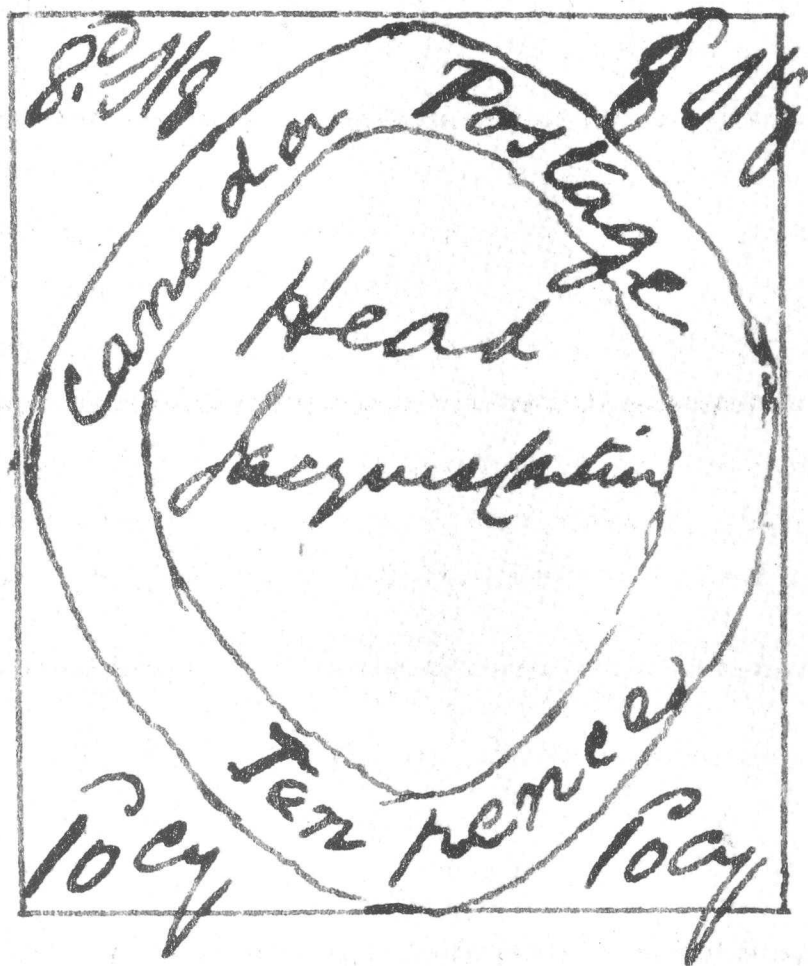 8.d Stg
8d Stg
Canada Postage
Head
Jacques Cartier
Ten pence
10 cy
10 cy